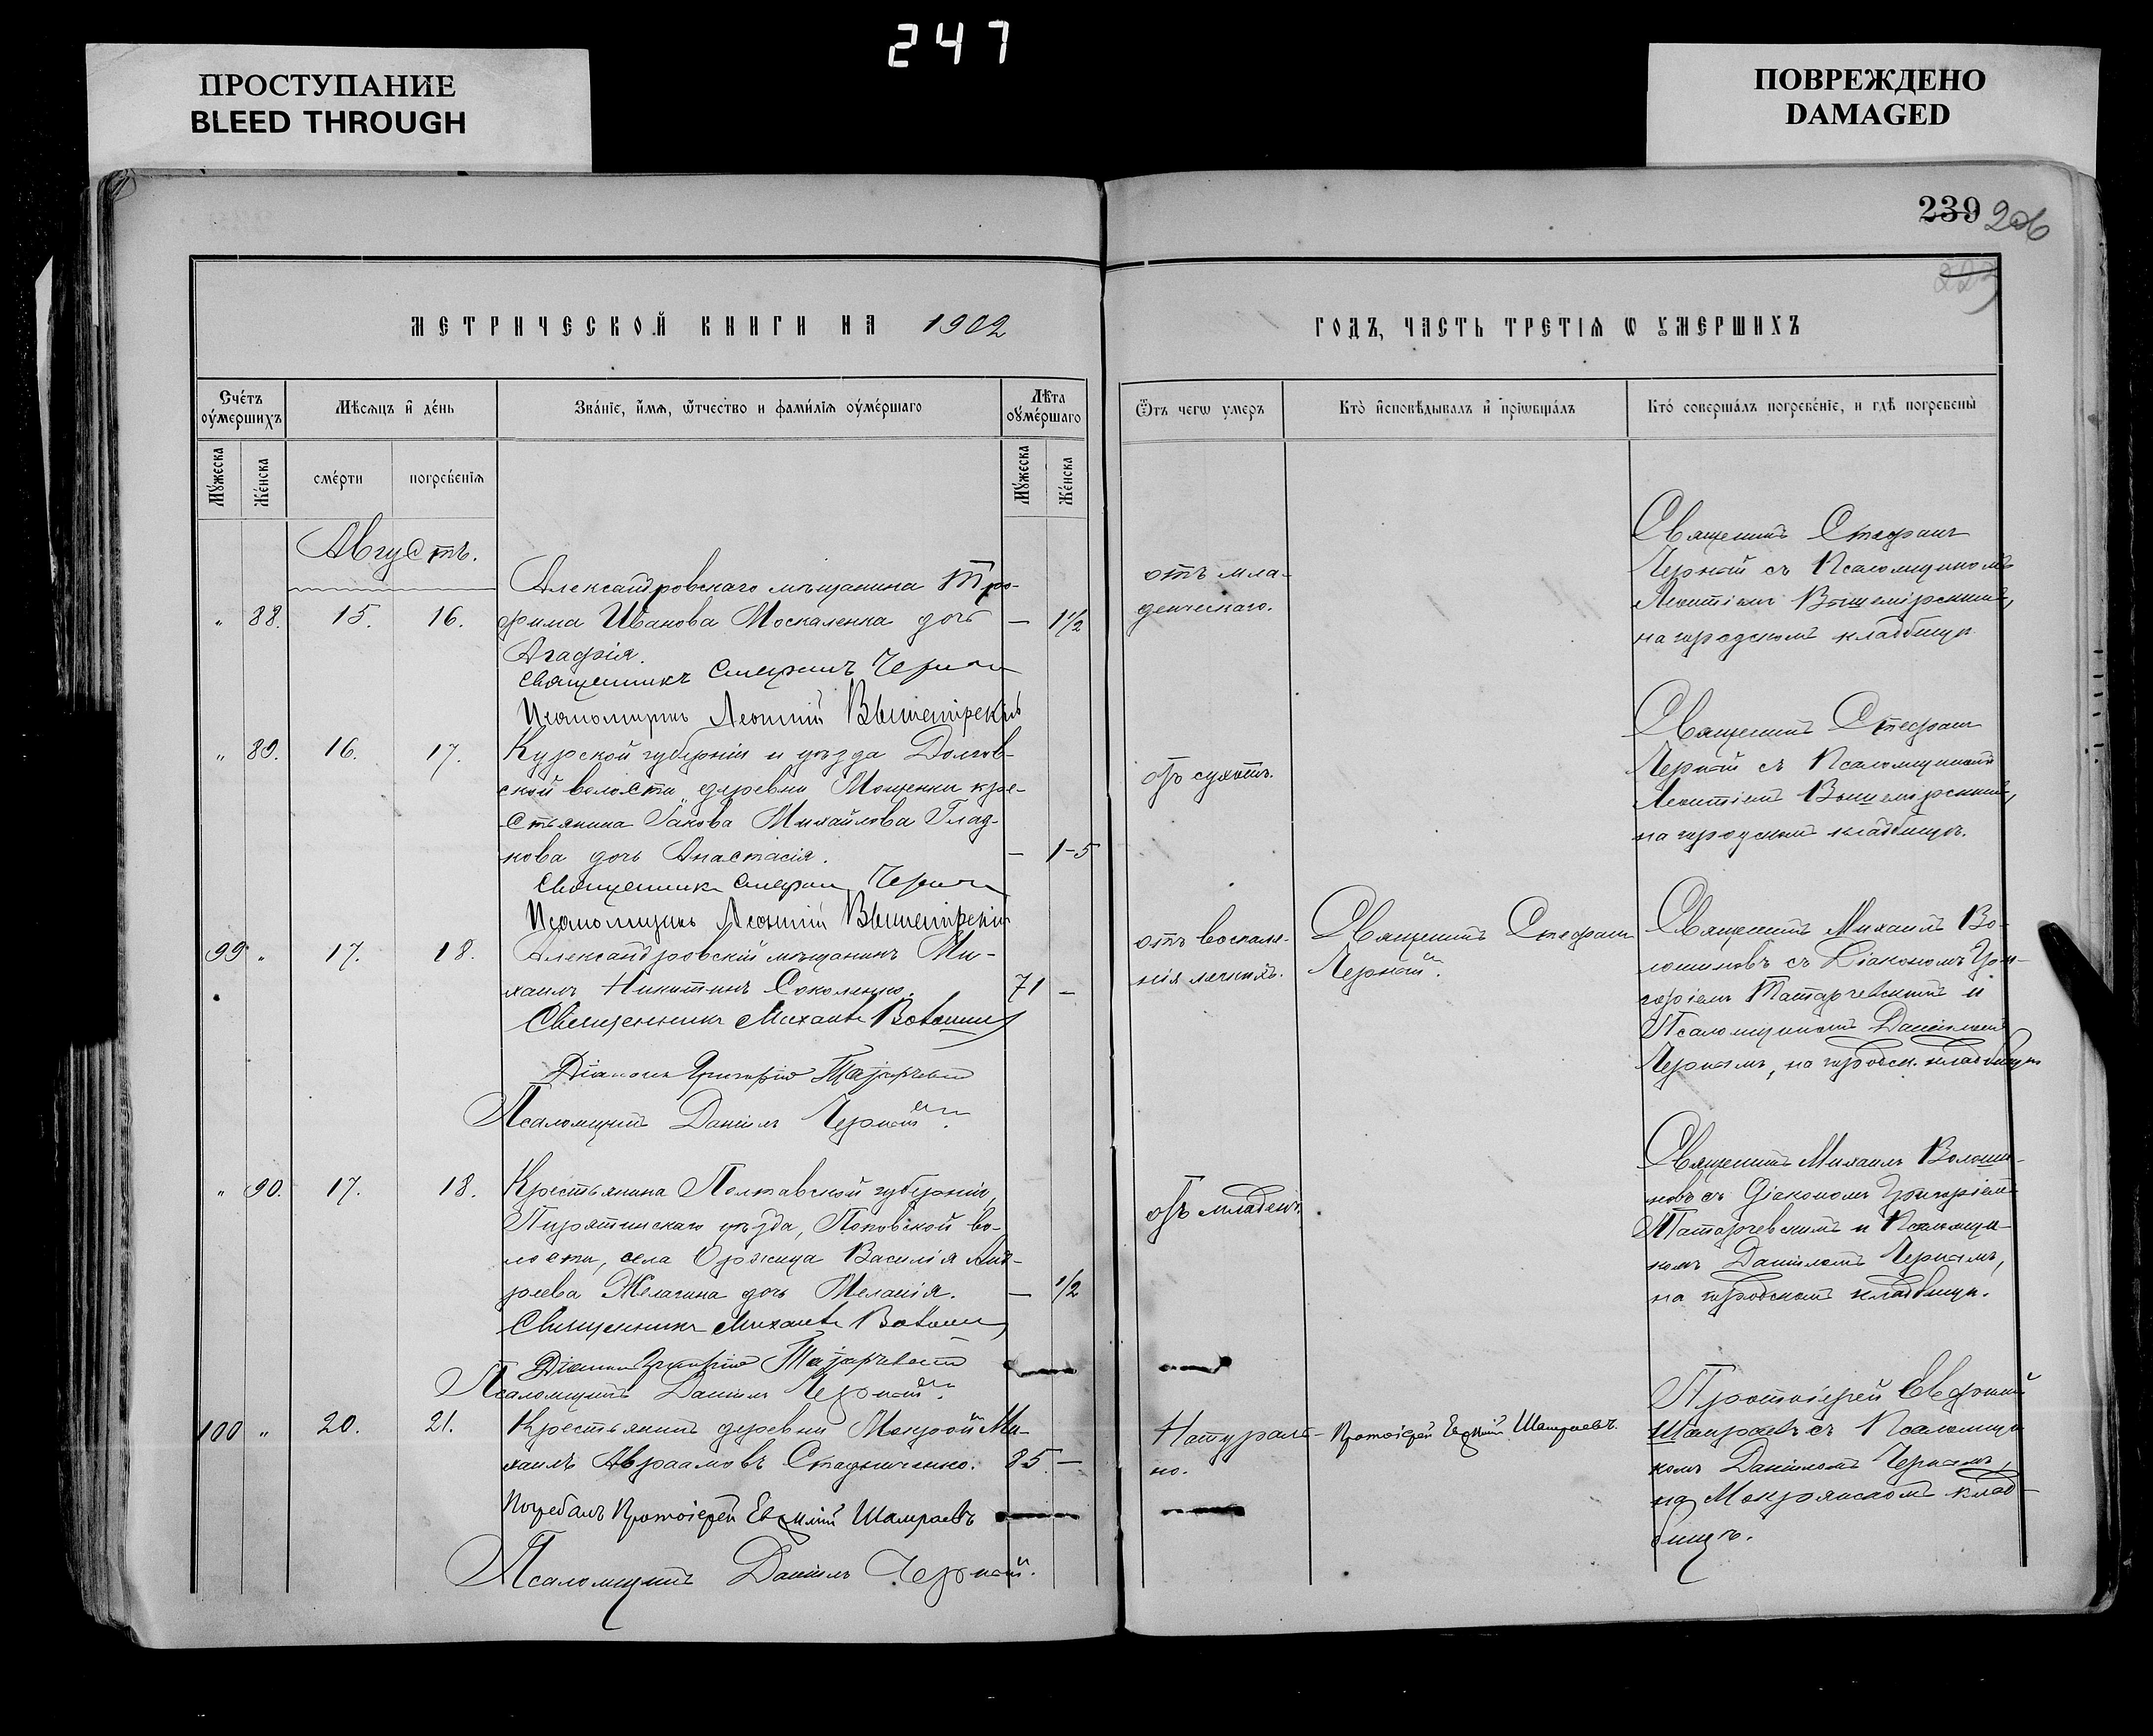 247
ПРОСТУПАНИЕ
BLEED THROUGH
ПОВРЕЖДЕНО
DAMAGED
239 206
МЕТРИЧЕСКОЙ КНИГИ НА 1902
ГОДЪ, ЧАСТЬ ТРЕТІѦ Ѡ ОУМЕРШИХЪ
Сче́тъ оу́мершихъ
Мѣсѧцъ и҆ де́нь
Зва́нїе, и҆́мѧ, ѿтчество и фами́лїѧ оуме́ршаго
Лѣ́та оуме́ршаго
Ѿтъ чегѡ умеръ
Кто̀ и҆сповѣ́дывалъ и҆ прїѡбща́лъ
Кто́ соверша́лъ погребе́нїе, и гдѣ̀ погребены̀
Му́жеска
Же́нска
сме́рти
погребе́нїѧ
Му́жеска
Же́нска
Августъ.
Александровскаго мѣщанина Тро-
" 88. 15. 16. фима Иванова Москаленка дочь — 1 1/2
Агафія.
Священникъ Стефанъ Черный
Псаломщикъ Леонтій Вышемірскій
отъ мла-
денческаго.
Священникъ Стефанъ
Черный съ Псаломщикомъ
Леонтіемъ Вышемірскимъ,
на городскомъ кладбищѣ
" 89. 16. 17. Курской губерніи и уѣзда Долгов-
ской волости, деревни Мощенки кре-
стьянина Іакова Михайлова Глад-
кова дочь Анастасія. — 1-5
Священникъ Стефанъ Черный
Псаломщикъ Леонтій Вышемірскій
отъ сухотъ.
Священникъ Стефанъ
Черный съ Псаломщикомъ
Леонтіемъ Вышемірскимъ,
на городскомъ кладбищѣ.
99 " 17. 18. Александровскій мѣщанинъ Ми-
хаилъ Никитинъ Соколенко. 71 —
Священникъ Михаилъ Волошиновъ
Діаконъ Григорій Татарчевскій
Псаломщикъ Даніилъ Черный.
отъ воспале-
нія легкихъ.
Священникъ Стефанъ
Черный.
Священникъ Михаилъ Во-
лошиновъ съ Діакономъ Гри-
горіемъ Татарчевскимъ и
Псаломщикомъ Даніиломъ
Чернымъ, на городск. кладбищѣ
" 90. 17. 18. Крестьянина Полтавской губерніи,
Пирятинскаго уѣзда, Поповской во-
лости, села Оржица Василія Анд-
реева дочь Меланія. — 1/2
Священникъ Михаилъ Волошиновъ
Діаконъ Григорій Татарчевскій
Псаломщикъ Даніилъ Черный.
отъ младен.
Священникъ Михаилъ Волоши-
новъ съ Діакономъ Григоріемъ
Татарчевскимъ и Псаломщи-
комъ Даніиломъ Чернымъ,
на городскомъ кладбищѣ.
100 " 20. 21. Крестьянинъ деревни Мокрой Ми-
хаилъ Авраамовъ Стадниченко. 85. —
Погребалъ Протоіерей Евфимій Шамраевъ
Псаломщикъ Даніилъ Черный.
Натураль-
но.
Протоіерей Евфимій Шамраевъ.
Протоіерей Евфимій
Шамраевъ съ Псаломщи-
комъ Даніиломъ Чернымъ,
на Мокрянскомъ клад-
бищѣ.